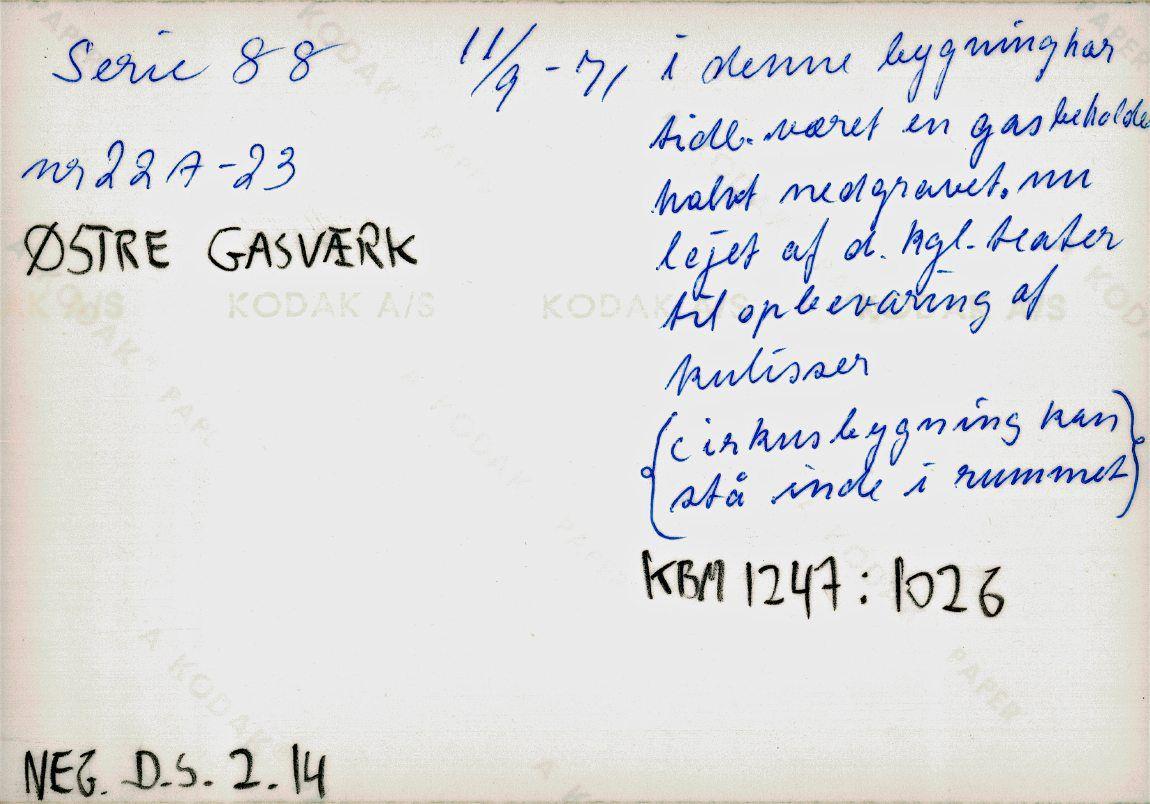 Serie 88
11/9 - 71
nr 22 A - 23
ØSTRE GASVÆRK
i denne bygning har
tidl. været en gasbeholder
halvt nedgravet. nu
lejet af d. kgl. teater
til opbevaring af
kulisser
(cirkusbygning kan
stå inde i rummet)
KBM 1247 : 1026
NEG. D.S. 2. 14
KODAK A/S KODAK A/S